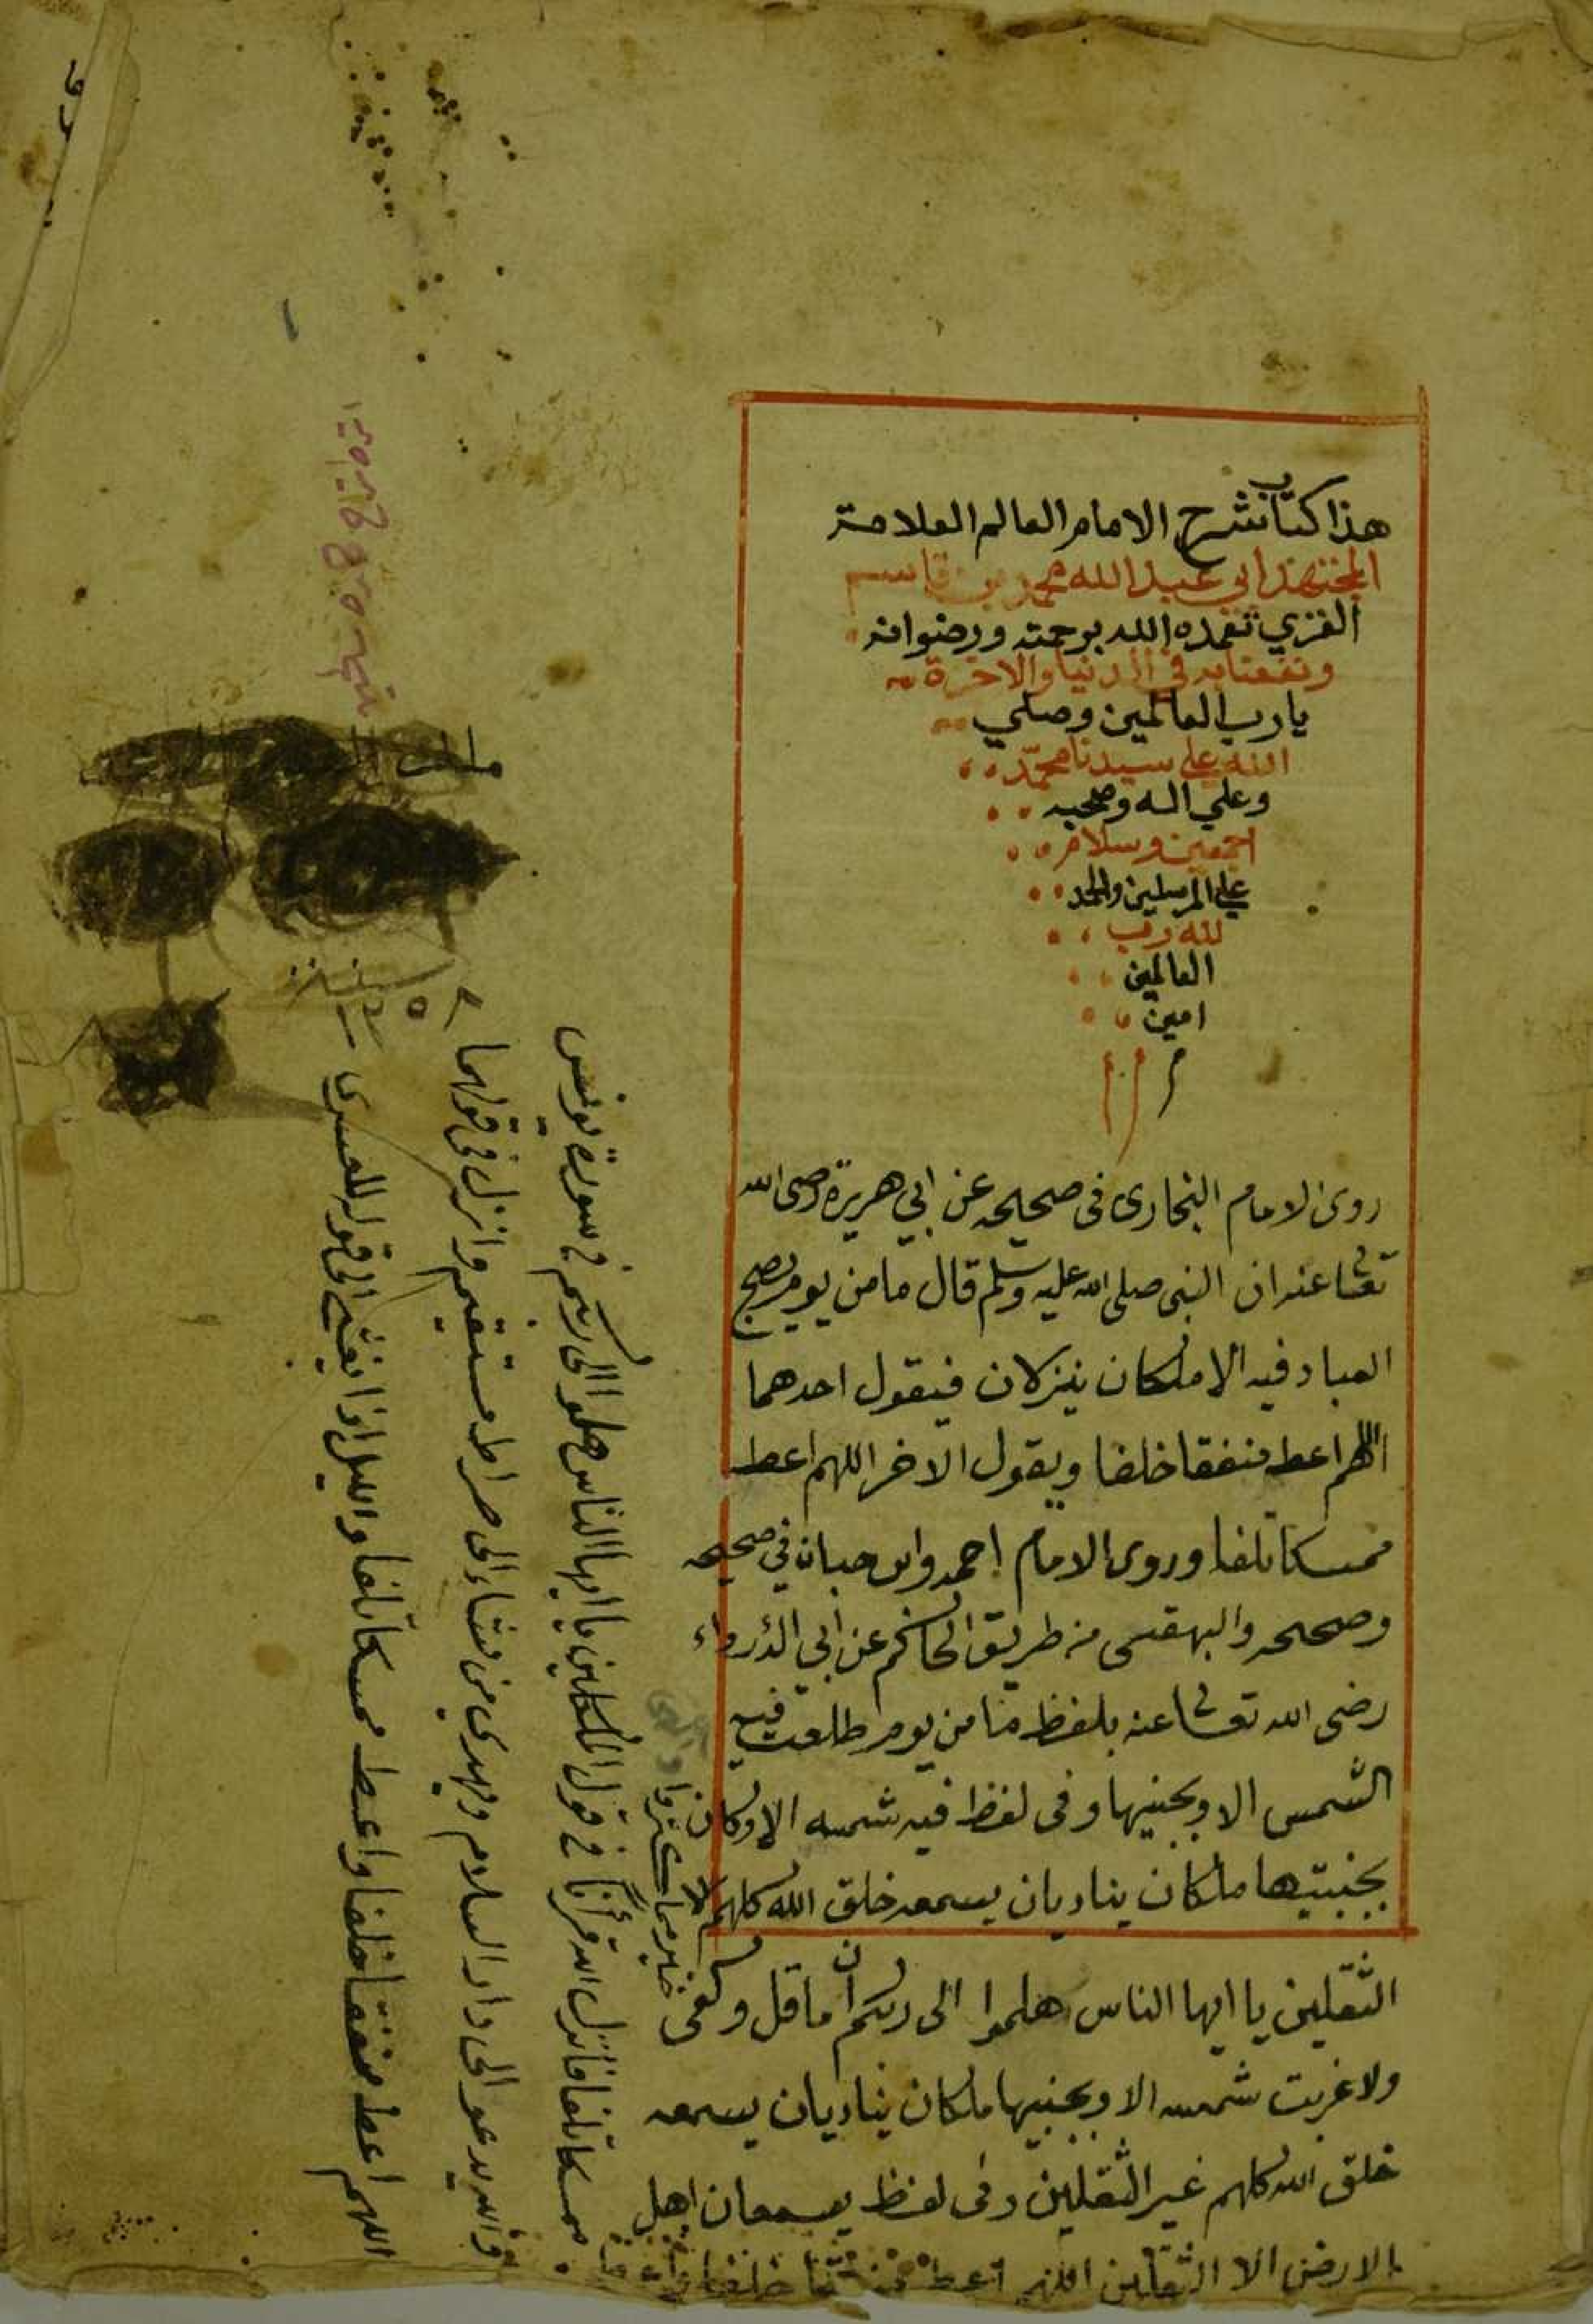 هذا كتاب شرح الامام العالم العلامة
المجتهد ابي عبد الله محمد بن قاسم
الغزي تغمده الله برحمته ورضوانه
ونفعنا به في الدنيا والاخرة
يا رب العالمين وصلي
الله علي سيدنا محمد
وعلي اله وصحبه
اجمعين وسلام
علي المرسلين والحمد
لله رب
العالمين
امين
روى الامام البخارى فى صحيحه عن ابي هريرة رضى الله
تعالى عنه ان النبى صلى الله عليه وسلم قال ما من يوم يصبح
العباد فيه الا ملكان ينزلان فيقول احدهما
اللهم اعط منفقا خلفا ويقول الاخر اللهم اعط
ممسكا تلفا وروى الامام احمد وابن حبان في صحيحه
وصححه والبيهقى من طريق الحاكم عن ابي الدرداء
رضى الله تعالى عنه بلفظ ما من يوم طلعت فيه
الشمس الا وبجنبيها وفى لفظ فيه شمسه الا وكان
بجنبتيها ملكان يناديان يسمعه خلق الله كلهم الا
الثقلين يا ايها الناس هلموا الى ربكم ان ما قل وكفى
خير مما كثر وا
ولا غربت شمسه الا وبجنبيها ملكان يناديان يسمعه
خلق الله كلهم غير الثقلين وفى لفظ يسمعان اهل
الارض الا الثقلين اللهم اعط منفقا خلفا واعط
ممسكا تلفا فانزل الله قرأنا في قول الملكين يا ايها الناس هلموا الى ربكم في سورة يونس
والله يدعو الى دار السلام ويهدي من يشاء الى صراط مستقيم وانزل في قولهما
اللهم اعط منفقا خلفا واعط ممسكا تلفا والليل اذا يغشى الى قوله للعسرى